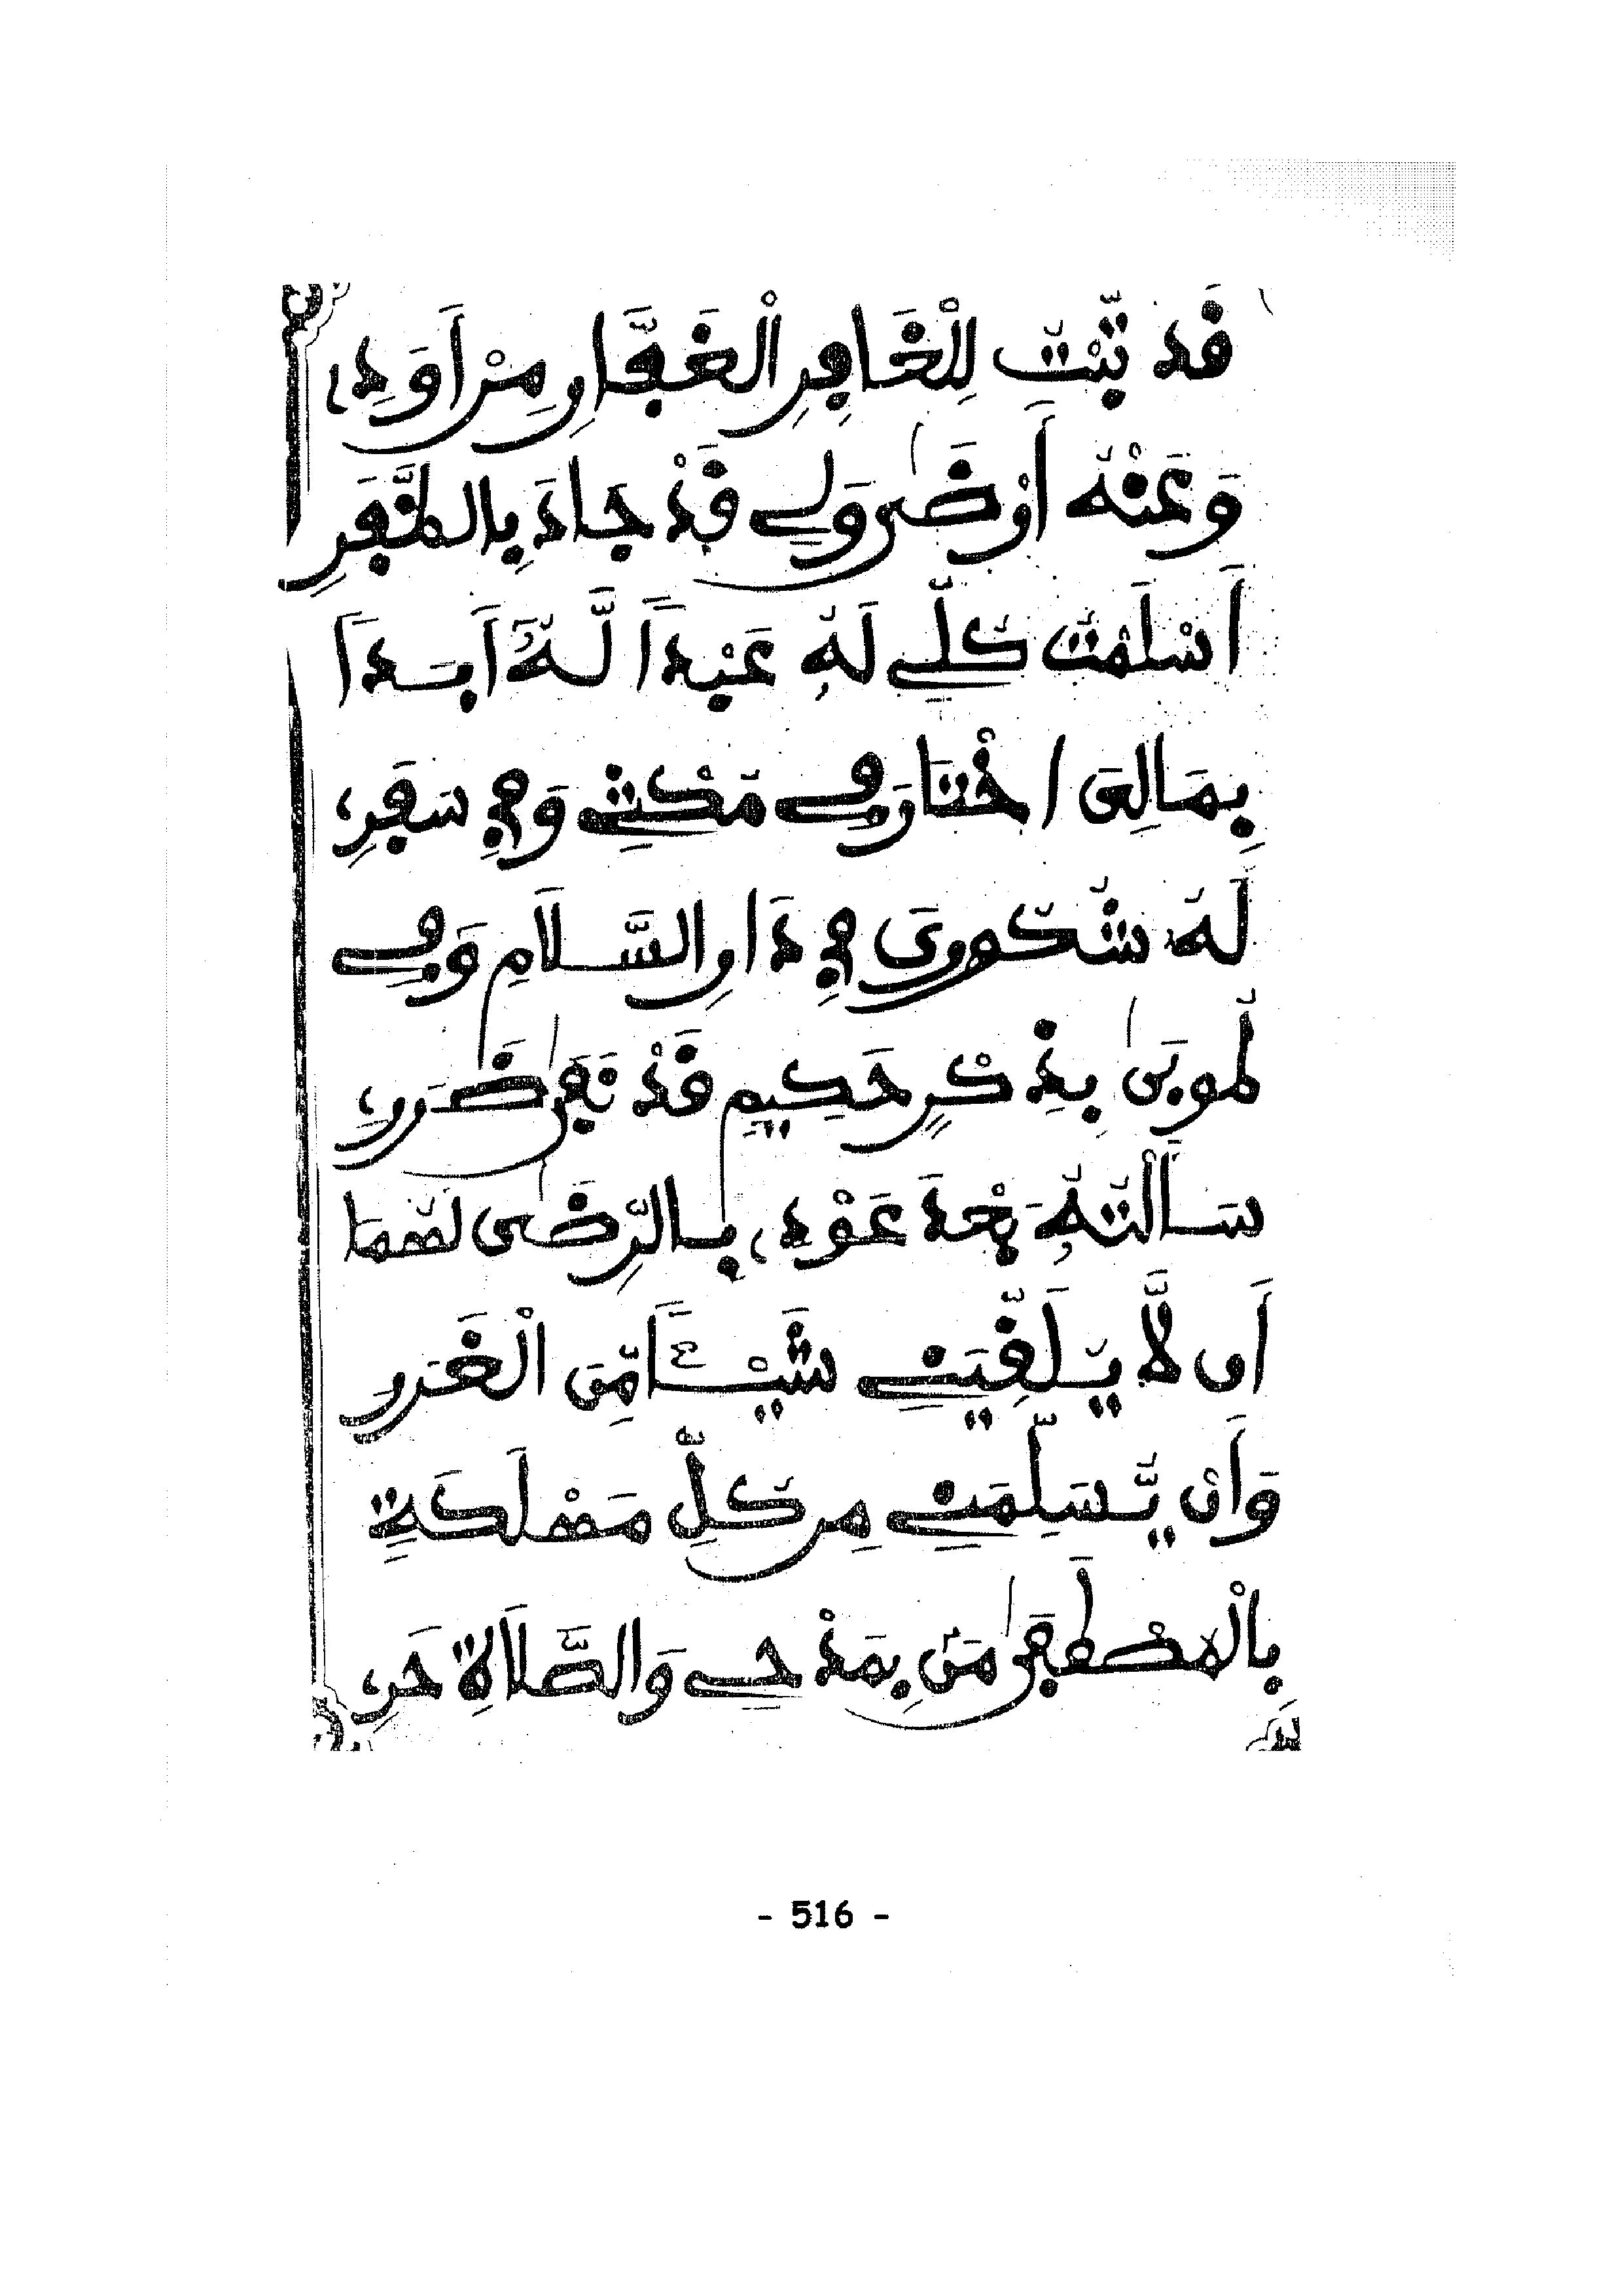 قَد تُّبْتُ لِلْغَافِرِ الْغَفَّارِ مِنْ أَوَدِ،
وَعَنْهُ أَرْضَىٰ وَلِي قَدْ جَادَ بِالظَّفَرِ
أَسْلَمْتُ كُلِّي لَهُ عَبْدًا لَّهُ أَبَدًا
بِمَا لِيَ اخْتَارَ فِي مَكْثِي وَفِي سَفَرِ،
لَهُ شُكُورِيَ فِي دَارِ السَّلَامِ وَفِي
طُوبَىٰ بِذِكْرٍ حَكِيمٍ قَدْ نَفَىٰ ضَرَرِ،
سَأَلْتُهُ بَعْدَ عَوْدِ، بِالرِّضَىٰ لَهُمَا
أَن لَّا يُلَقِّيَنِي شَيْئًا مِّنَ الْغَرَرِ
وَأَن يُّسَلِّمَنِي مِن كُلِّ مَهْلَكَةٍ
بِالْمُصْطَفَىٰ مَنْ بِمَدْحِي وَالصَّلَاةِ حَرِ،
- 516 -